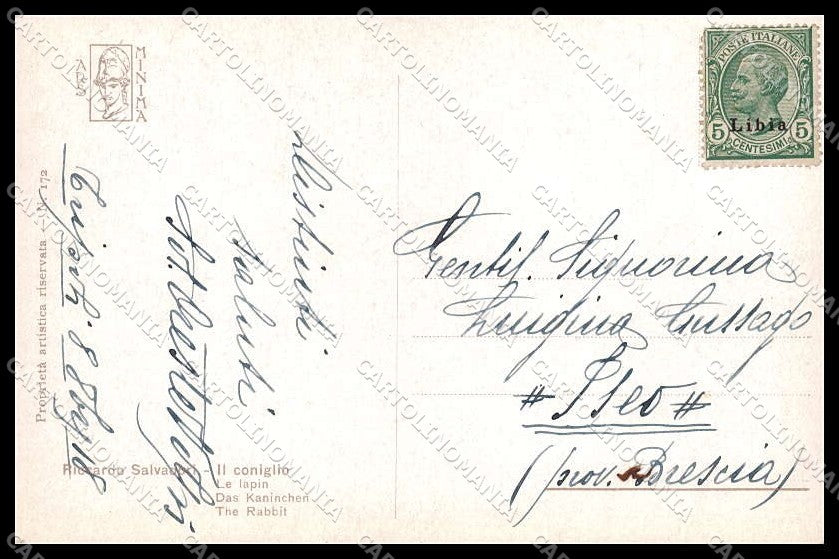 ARS
MINIMA
Proprietà artistica riservata - N. 172
Distinti
saluti
Riccardo Salvadori - Il coniglio
Le lapin
Das Kaninchen
The Rabbit
POSTE ITALIANE
Libia
5 5
CENTESIMI
Gentil. Signorina
Luigina Gussago
# Iseo #
(prov. Brescia)
CARTOLINOMANIA